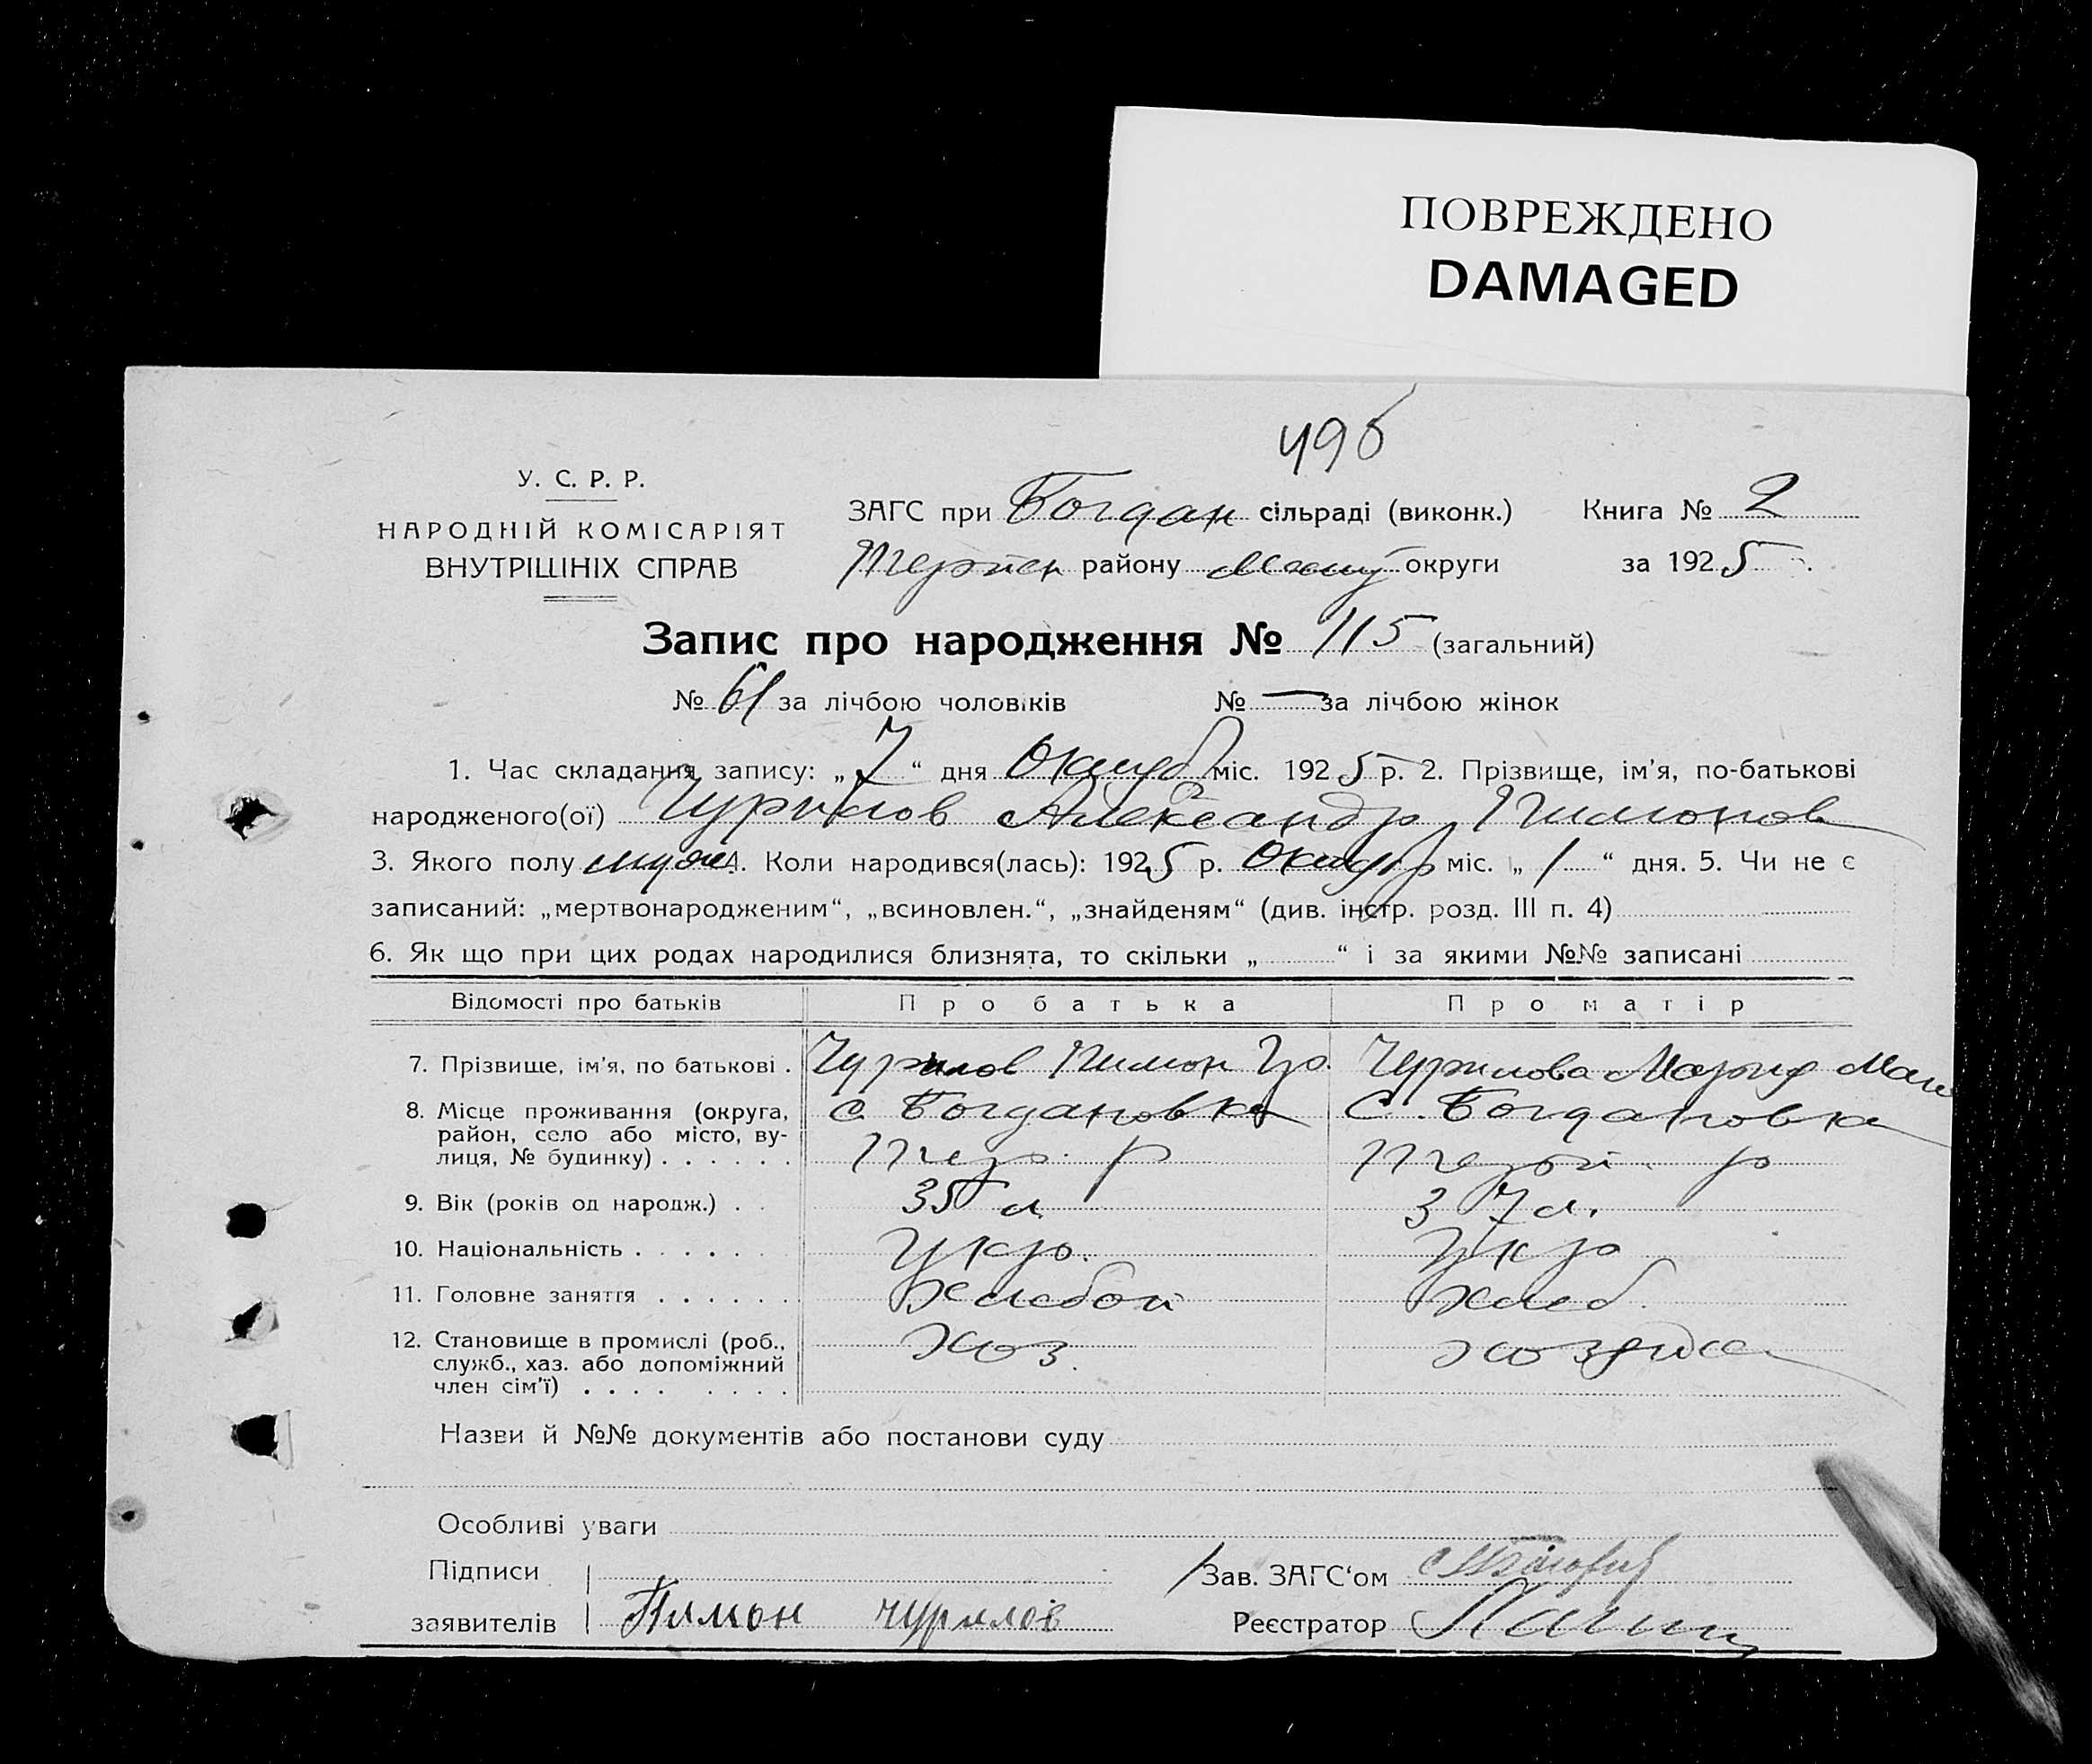 ПОВРЕЖДЕНО
DAMAGED
496
У. С. Р. Р.
НАРОДНІЙ КОМІСАРІЯТ
ВНУТРІШНІХ СПРАВ
ЗАГС при Богдан сільраді (виконк.) Книга № 2
району округи за 1925
Запис про народження № 115 (загальний)
№ 61 за лічбою чоловіків № — за лічбою жінок
1. Час складання запису: „7“ дня Октуб міс. 1925 р. 2. Прізвище, ім'я, по-батькові
народженого(ої) Чурилов Александр Пимонов
3. Якого полу муж 4. Коли народився(лась): 1925 р. міс. „1“ дня. 5. Чи не є
записаний: „мертвонародженим“, „всиновлен.“, „знайденям“ (див. інстр. розд. III п. 4)
6. Як що при цих родах народилися близнята, то скільки „ “ і за якими №№ записані
Відомості про батьків Про батька Про матір
7. Прізвище, ім'я, по батькові . Чурилов Пимон Чурилова
8. Місце проживання (округа, с. Богдановка С. Богдановка
район, село або місто, ву-
лиця, № будинку) . . . . . . р р
9. Вік (років од народж.) . . 35 л 37 л.
10. Національність . . . . . . Укр. Укр
11. Головне заняття . . . . . . Хлебоп Хлеб.
12. Становище в промислі (роб., хоз. хозяйка
служб., хаз. або допоміжний
член сім'ї) . . . . . . . .
Назви й №№ документів або постанови суду
Особливі уваги
Підписи Зав. ЗАГС‘ом
заявителів Пимон чурилов Реєстратор